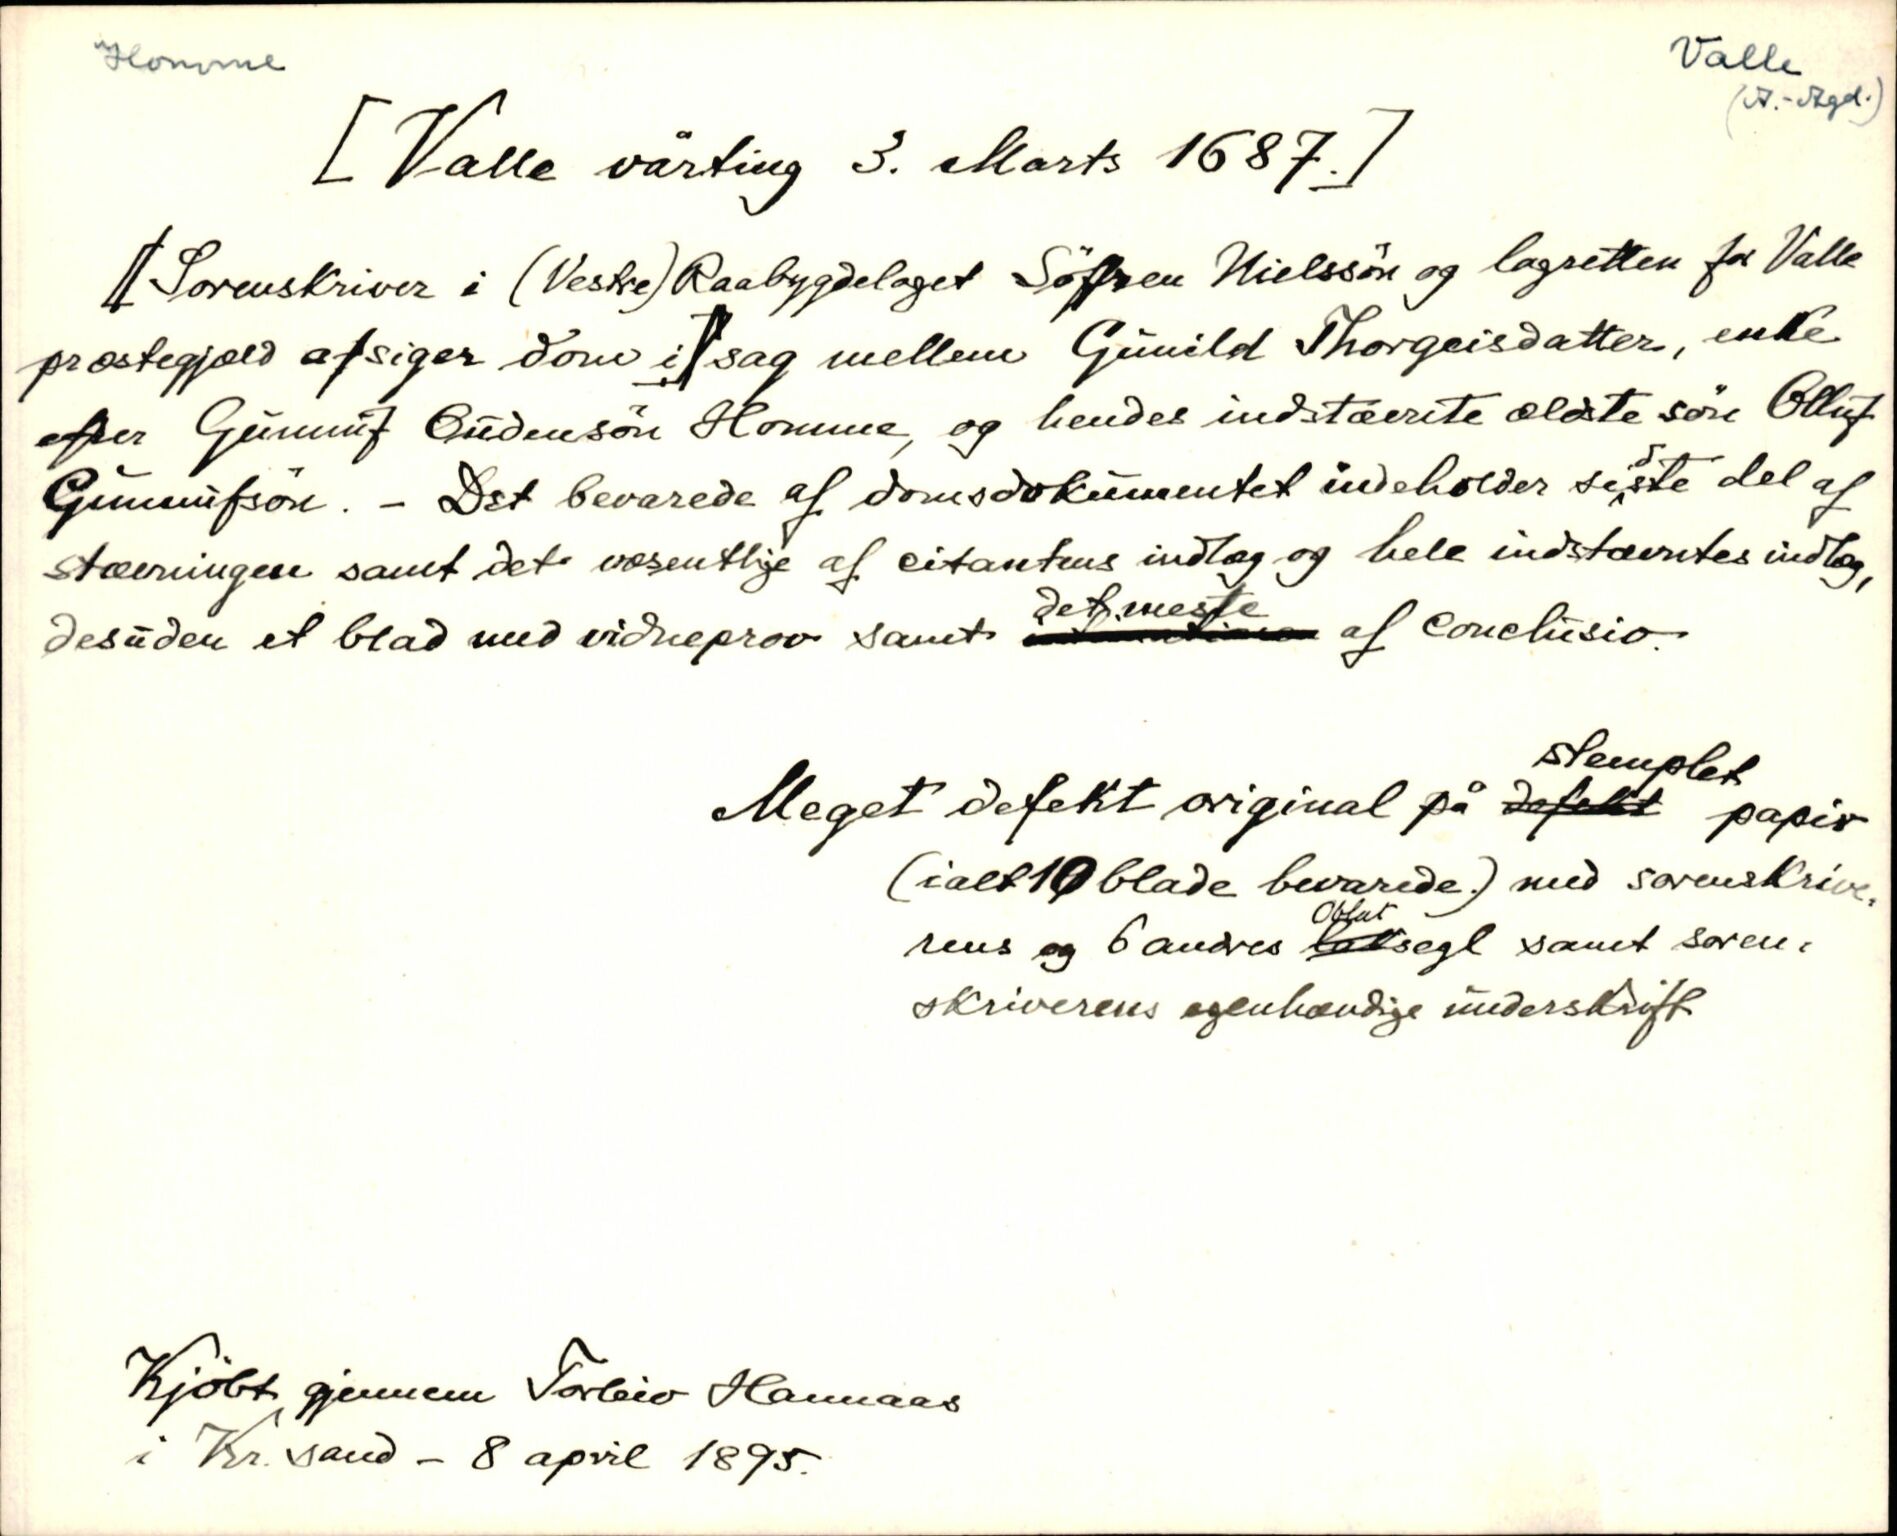 Homme
Valle
(A.-Agd.)
[Valle vårting 3. Marts 1687.]
[Sorenskriver i (Vestre) Raabygdelaget Söffren Nielssön og lagretten for Valle
præstegjæld afsiger dom i] sag mellem Gunild Thorgeisdatter, enke
efter Gunnuf Oudensön Homme, og hendes indstævnte ældste sön Olluf
Gunnufsön. - Det bevarede af domsdokumentet indeholder sidste del af
stævningen samt det væsentlige af citantens indlæg og hele indstævntes indlæg,
desuden et blad med vidneprov samt det meste af conclusio.
Meget defekt original på defekt stemplet papir
(ialt 10 blade bevarede.) med sorenskrive-
rens og 6 andres lak Oblat segl samt soren-
skriverens egenhændige underskrift
Kjöbt gjennem Torleiv Hannaas
i Kr.sand - 8 april 1895.